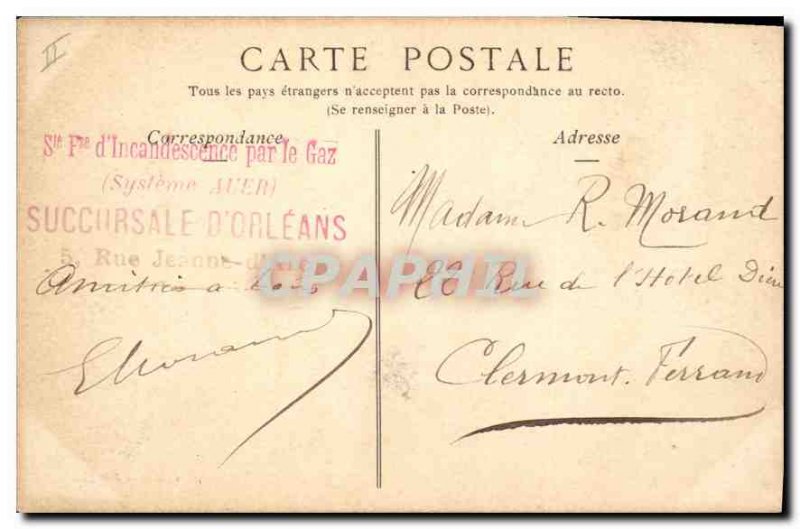 II
CARTE POSTALE
Tous les pays étrangers n'acceptent pas la correspondance au recto.
(Se renseigner à la Poste).
Correspondance
Sté Fse d'Incandescence par le Gaz
(Système AUER)
SUCCURSALE D'ORLÉANS
5, Rue Jeanne-d'Arc
Amitiés a
EMorand
CPAPHIL
Adresse
Madame R. Morand
Rue de l'Hotel Dieu
Clermont. Ferrand